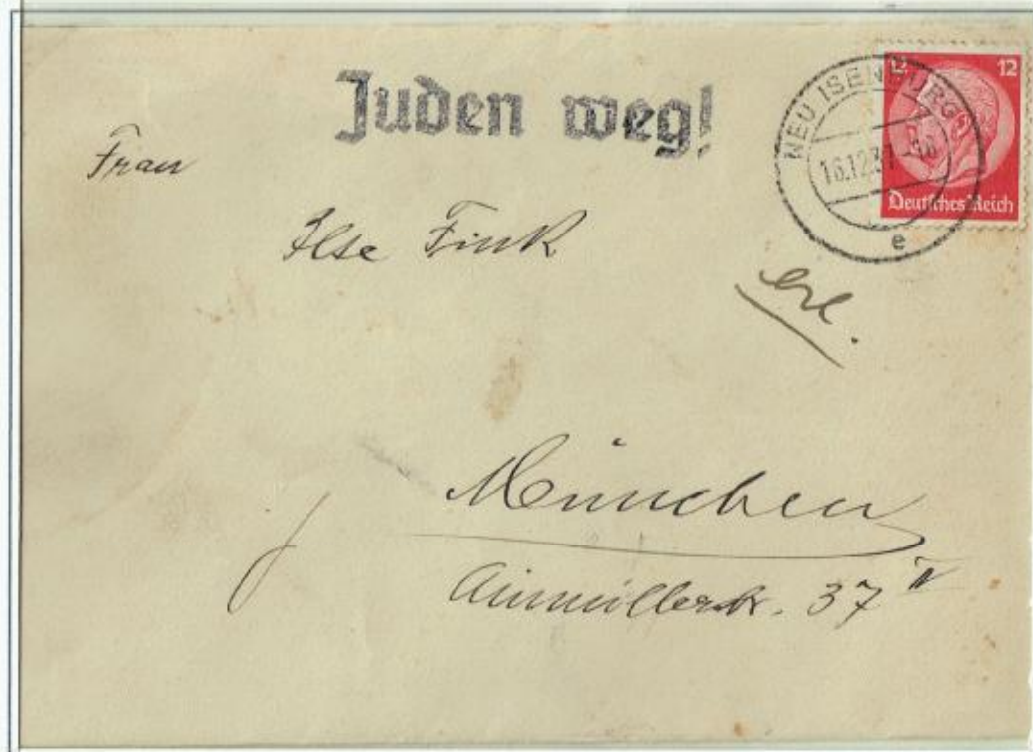 Juden weg!
12 12
NEU ISENBURG
16.12.37.-18
e
Deutsches Reich
Frau
Ilse Fink
erl.
München
Ainmillerstr. 37 II